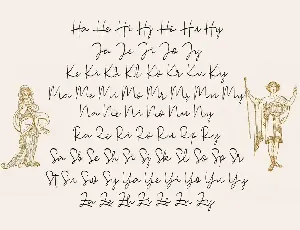 Ha He Hi Hy Ho Hu Hy
Ja Je Ji Jo Jy
Ke Ki Kl Kl Ko Kr Ku Ky
Ma Me Mi Mo Mr Ms Mu My
Na Ne Ni No Nu Ny
Ra Re Ri Ro Ru Rs Ry
Sa Sc Se Sh Si Sj Sk Sl So Sp Sr
St Su Sw Sy Ya Ye Yi Yo Yu Yy
Za Ze Zh Zi Zo Zu Zy